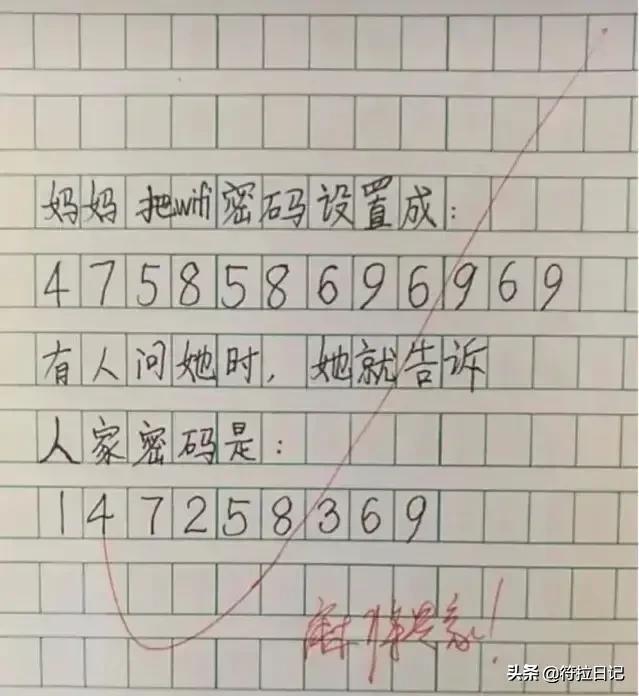 妈妈把wifi密码设置成:
475858696969
有人问她时,她就告诉
人家密码是:
147258369
麻将是家!
头条 @符拉日记